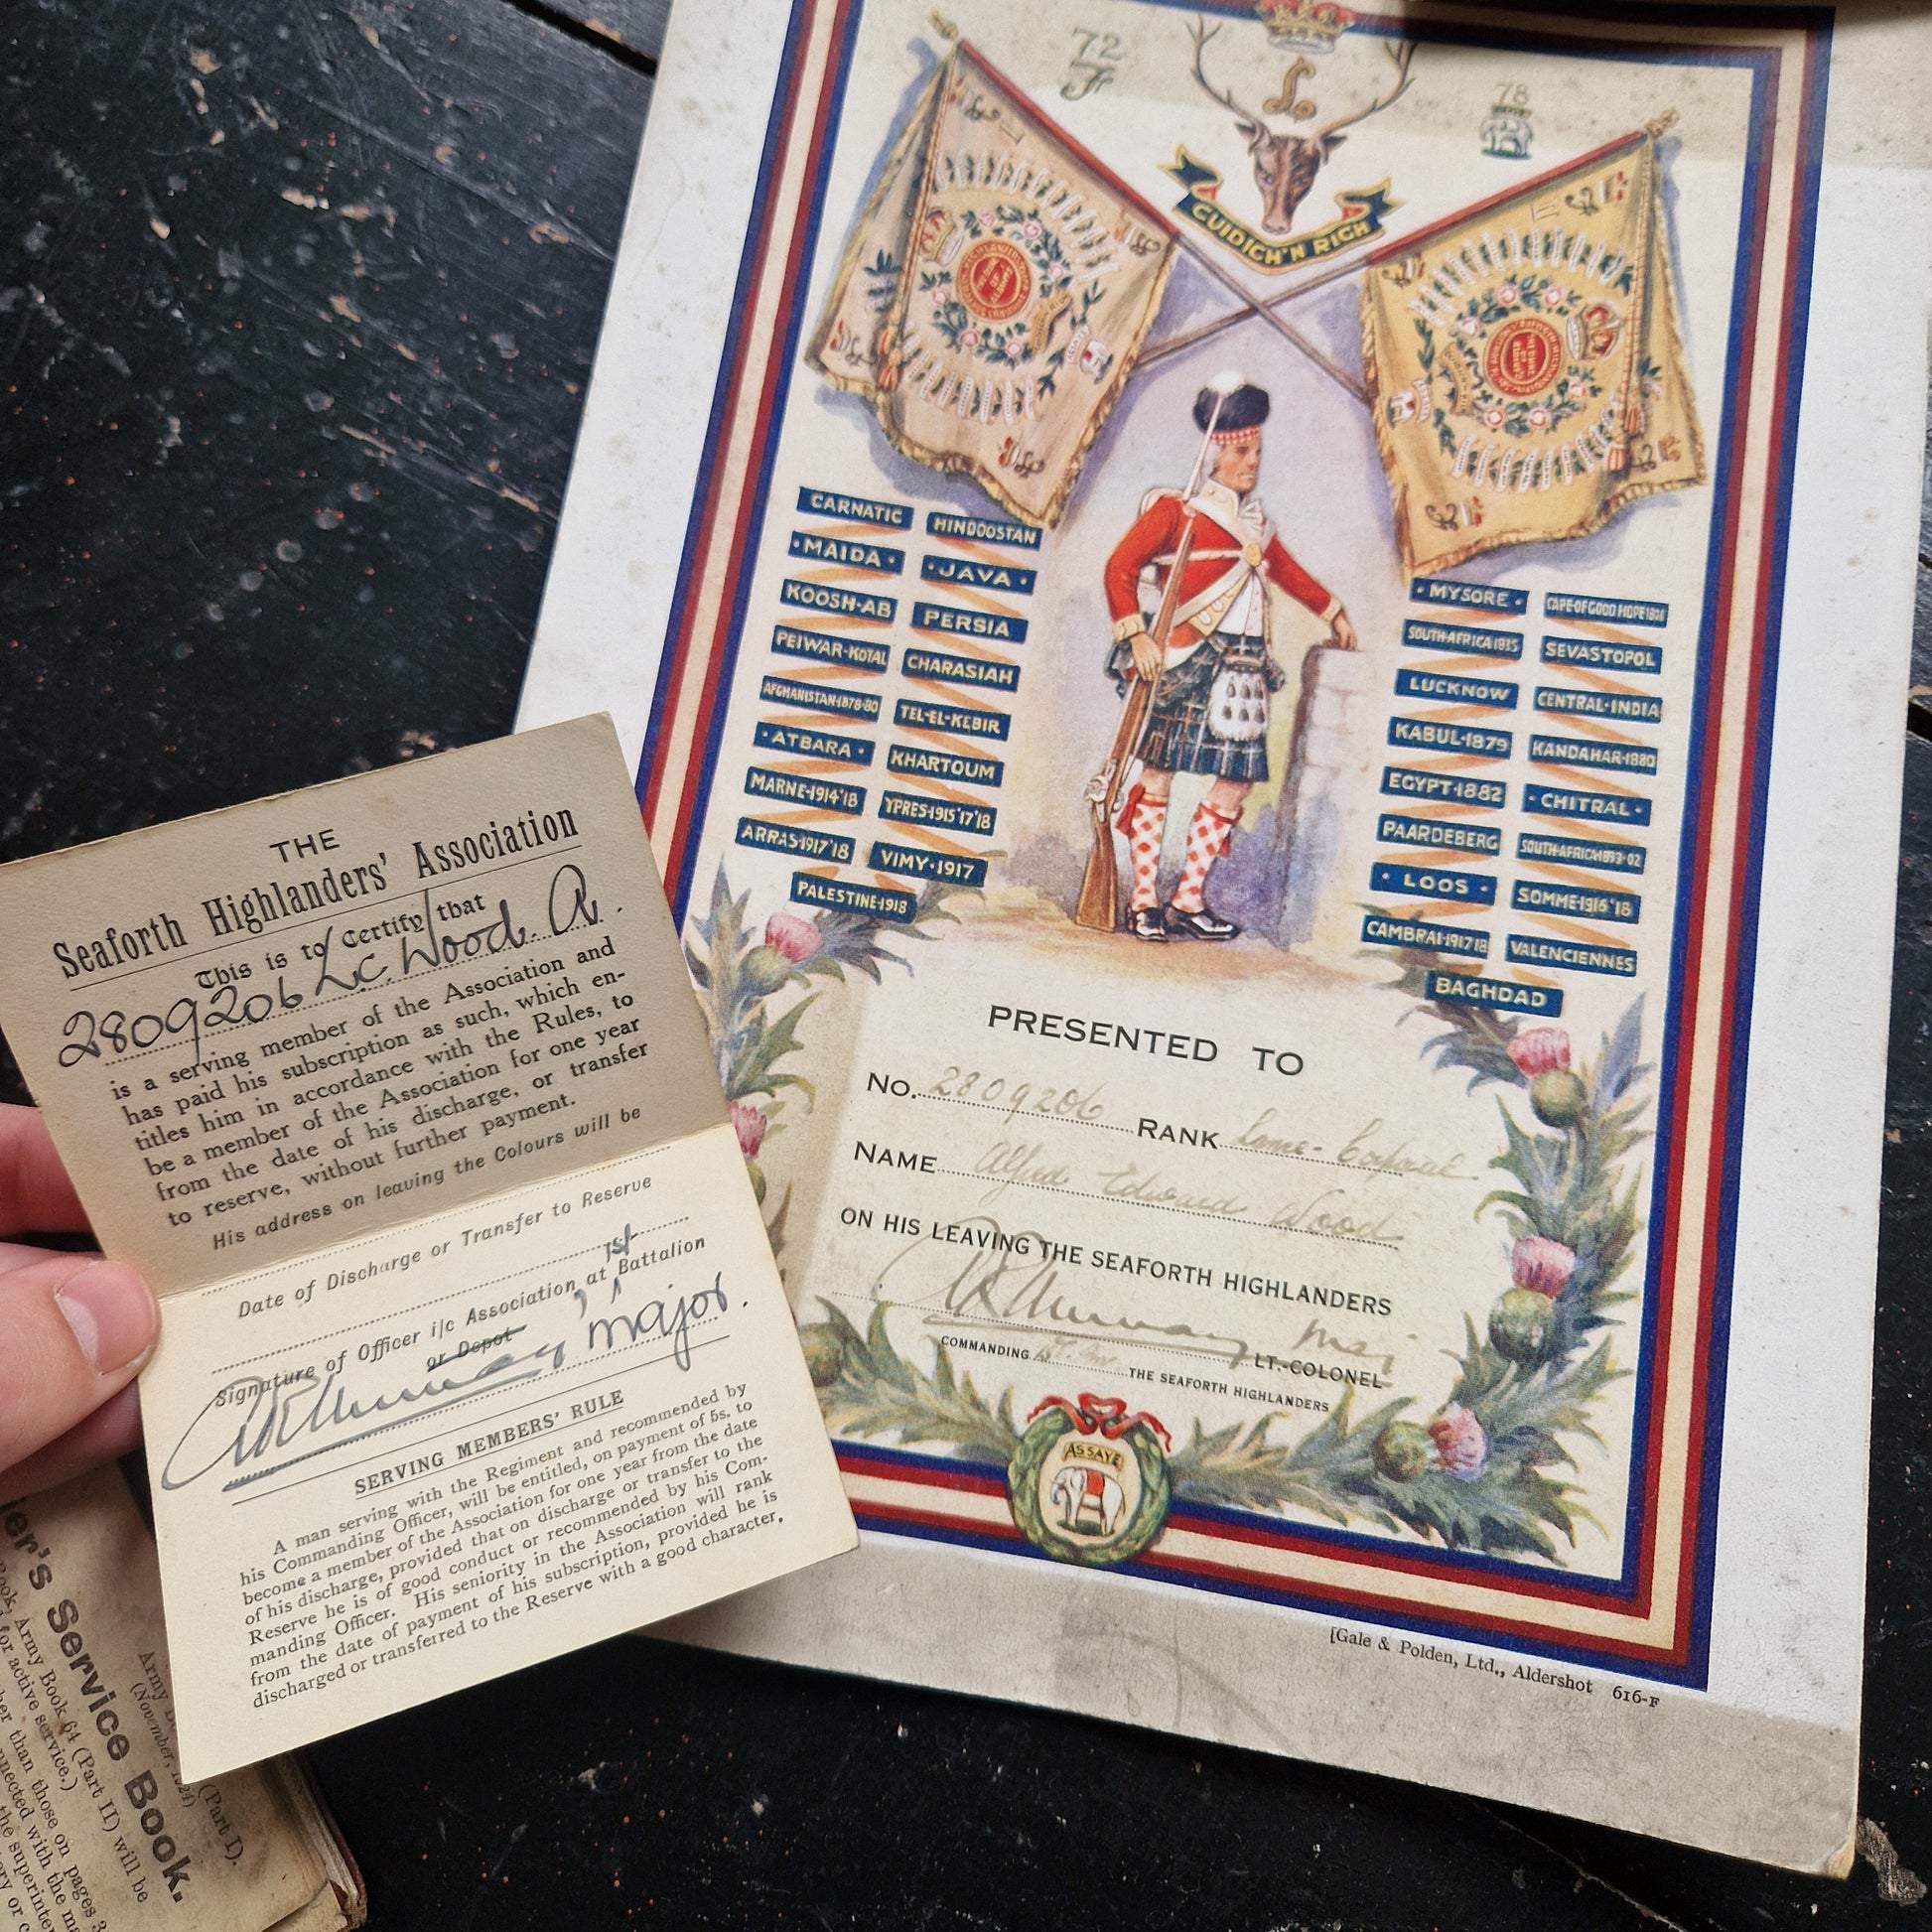 THE
Seaforth Highlanders' Association
This is to Certify that
2809206 L/c. Wood. A.
is a serving member of the Association and
has paid his subscription as such, which en-
titles him in accordance with the Rules, to
be a member of the Association for one year
from the date of his discharge, or transfer
to reserve, without further payment.
His address on leaving the Colours will be
Date of Discharge or Transfer to Reserve
1st
Signature of Officer i/c Association, at Battalion
or Depot
Murray Major.
SERVING MEMBERS' RULE
A man serving with the Regiment and recommended by
his Commanding Officer, will be entitled, on payment of 5s. to
become a member of the Association for one year from the date
of his discharge, provided that on discharge or transfer to the
Reserve he is of good conduct or recommended by his Com-
manding Officer. His seniority in the Association will rank
from the date of payment of his subscription, provided he is
discharged or transferred to the Reserve with a good character.
72
L
78
CUIDICH'N RICH
CARNATIC HINDOOSTAN
MAIDA JAVA
KOOSH-AB PERSIA
PEIWAR-KOTAL CHARASIAH
AFGHANISTAN-1878-80 TEL-EL-KEBIR
ATBARA KHARTOUM
MARNE-1914'18 YPRES-1915'17'18
ARRAS-1917'18 VIMY-1917
PALESTINE-1918
MYSORE CAPE-OF-GOOD HOPE 1806
SOUTH-AFRICA-1835 SEVASTOPOL
LUCKNOW CENTRAL-INDIA
KABUL-1879 KANDAHAR-1880
EGYPT-1882 CHITRAL
PAARDEBERG SOUTH-AFRICA-1899-02
LOOS SOMME-1916'18
CAMBRAI-1917'18 VALENCIENNES
BAGHDAD
PRESENTED TO
No. 2809206 RANK Lance-Corporal
NAME Alfred Edward Wood
ON HIS LEAVING THE SEAFORTH HIGHLANDERS
Murray Maj
LT.-COLONEL
COMMANDING 1st Bn. THE SEAFORTH HIGHLANDERS
ASSAYE
[Gale & Polden, Ltd., Aldershot 616-F
ier's Service Book.
Army
(Part I).
(November, 1924)
Book, Army Book 64 (Part II) will be
for active service.)
her than those on pages 3
nnected with the
the superinten
ory or